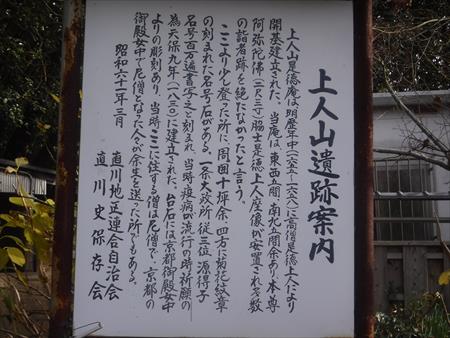 上人山遺跡案内
上人山是徳庵は明歴年中(一六五五〜一六五八)に高僧是徳上人により
開基建立された、当庵は東西五間、南北五間余あり本尊
阿弥陀佛(三尺三寸)脇士是徳上人座像が安置され多数
の詣者跡を絶たなかったと言う。
ここより少し登った所に、周囲十坪余、四方に菊花紋章
の刻まれた名号石がある。一条大政所従三位 源得子
名号百万遍書写之と刻まれ、当時疫病が流行の時祈願の
為天保九年(一八三八)に建立された、台石には京都御殿女中
よりの彫刻あり、当時ここに住する僧は尼僧で、京都の
御殿女中で尼僧となった人々が余生を送った所でもある。
昭和六十一年三月
直川地区連合自治会
直川史保存会